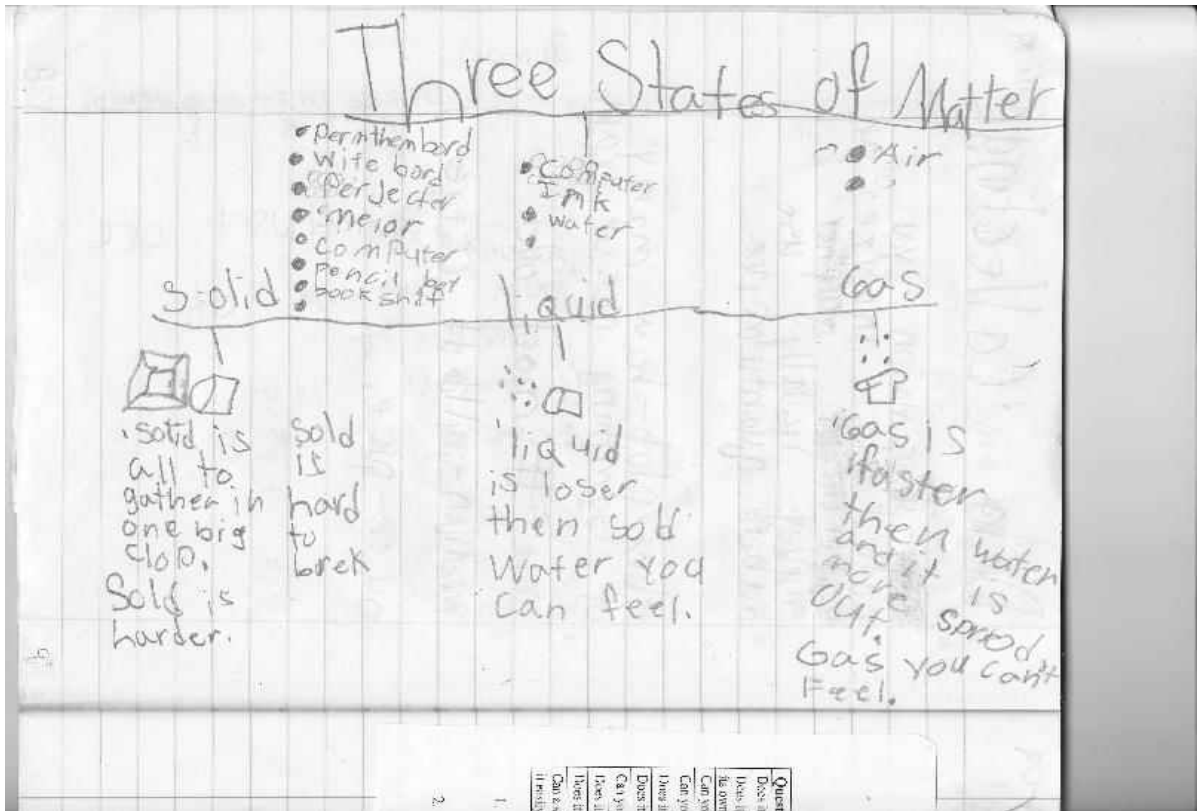 Three States of Matter
• perinthembord
• wite bord
• PerJecter
• meior
• computer
• Pencil
• book shlf
• computer
Ink
• water
•
• Air
•
solid
liquid
Gas
solid is
all to
gather in
one big
clop.
Sold is
harder.
sold
is
hard
to
brek
liquid
is loser
then sold
Water you
can feel.
Gas is
faster
then water
and it is
more spred
out.
Gas you can't
Feel.
Does it
its own
Can yo
Can yo
Does it
Can yo
Does it
1.
2.